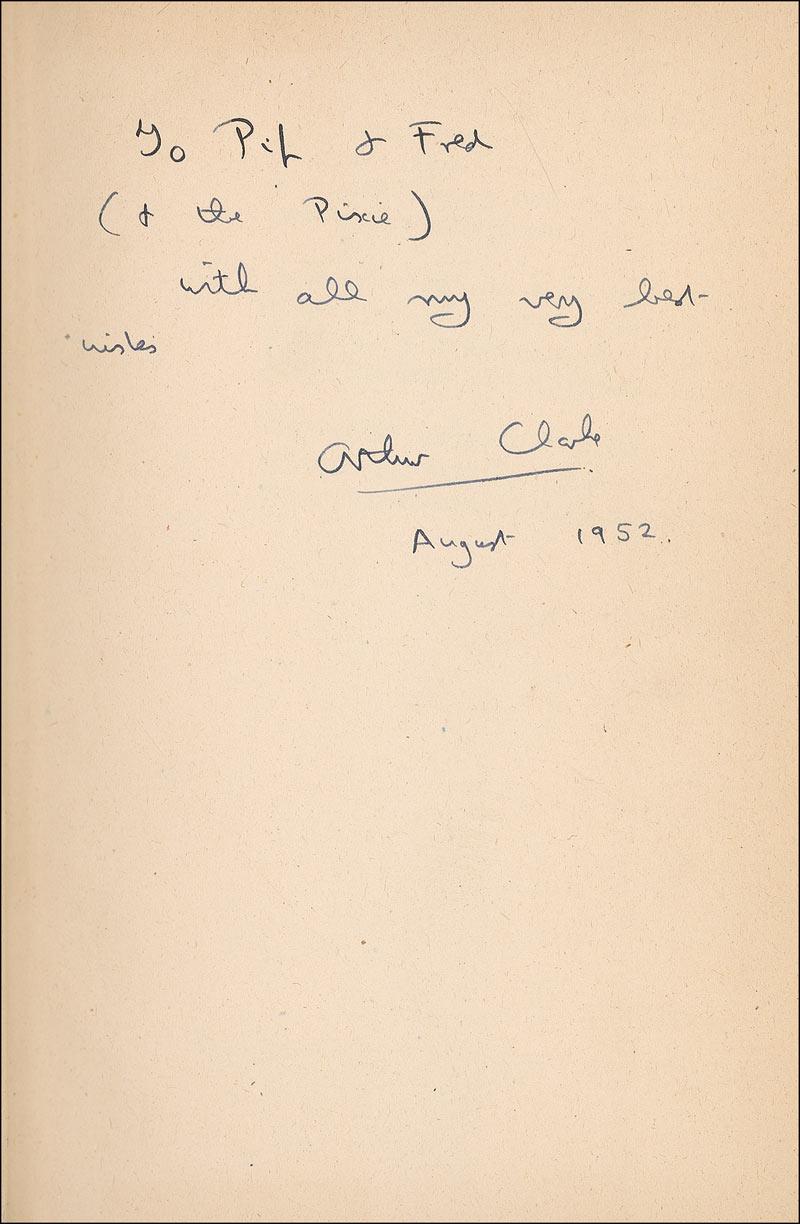 To Pip & Fred
(& the Pixie)
with all my very best
wishes
Arthur Clarke
August 1952.